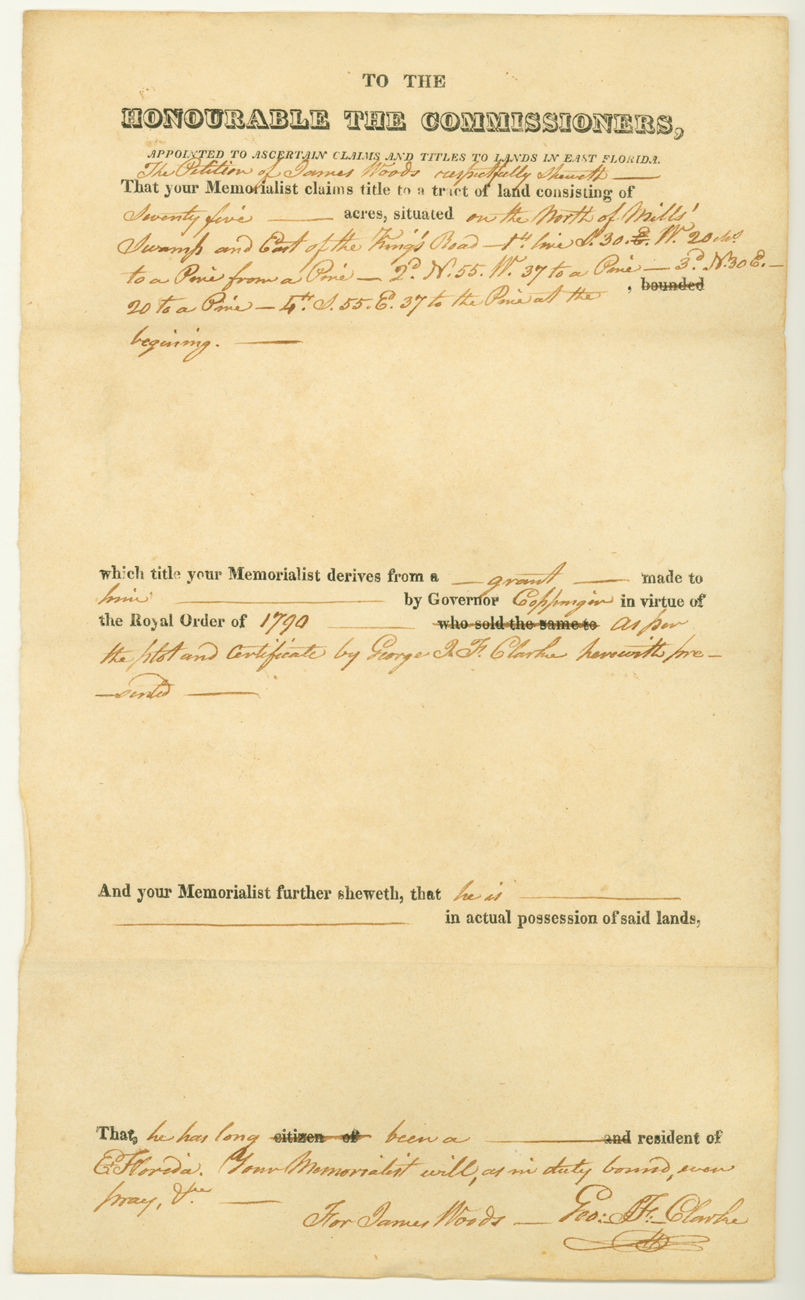 TO THE
HONOURABLE THE COMMISSIONERS,
APPOINTED TO ASCERTAIN CLAIMS AND TITLES TO LANDS IN EAST FLORIDA.
The Petition of James Woods respectfully sheweth —
That your Memorialist claims title to a tract of land consisting of
Seventy five — acres, situated on the North of Mills'
Swamp and East of the King's Road — 1st line S. 30. E. W. 20 chs
to a Pine from a Pine — 2d N. 55. W. 37 to a Pine — 3d N. 30 E. —
20 to a Pine — 4th S. 55. E. 37 to the Pine at the , bounded
begining. —
which title your Memorialist derives from a — grant — made to
him — by Governor Coppinger in virtue of
the Royal Order of 1790 — who sold the same to as per
the plot and certificate by George J. F. Clarke herewith pre-
-sented —
And your Memorialist further sheweth, that he is —
— in actual possession of said lands,
That, he has long citizen of been a — and resident of
E. Florida. Your Memorialist will, as in duty bound, ever
pray, &ca —
For James Woods — Geo: J. F. Clarke